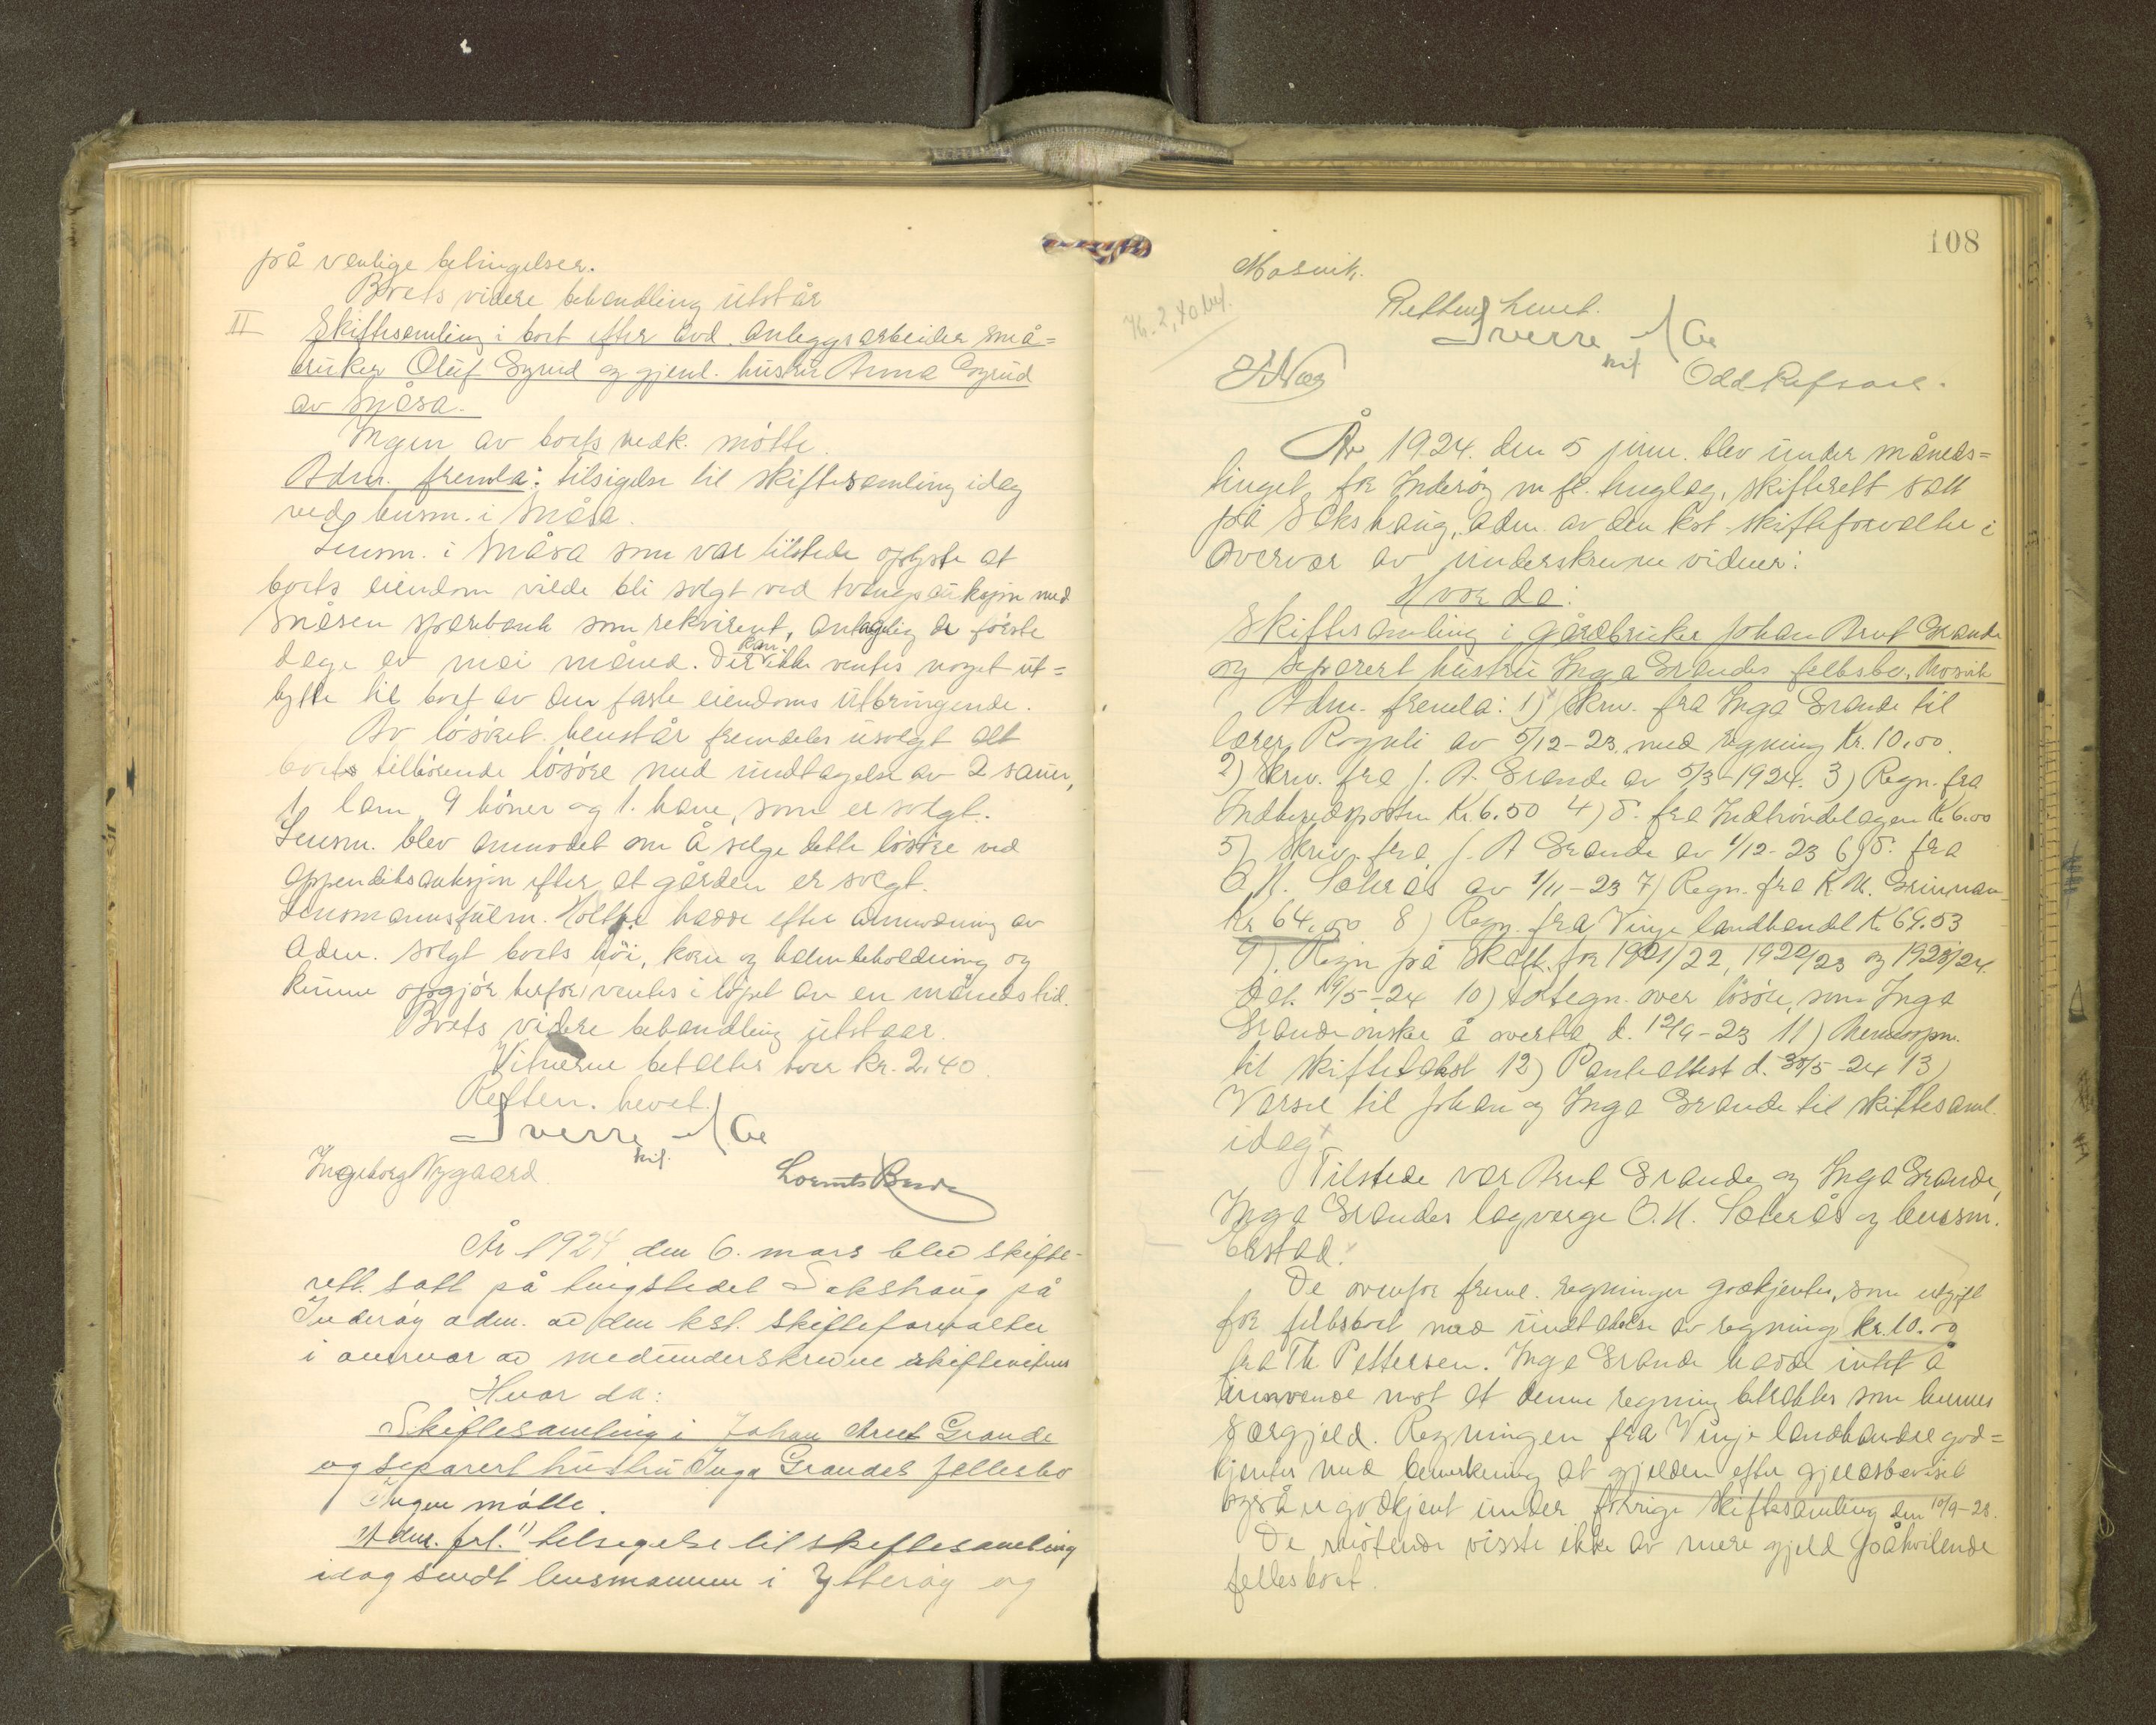 på vanlige betingelser.
Boets videre behandling utstår
II Skiftesamling i boet efter avd. anleggsarbeider små=
bruker Oluf Gyrud og gjenl. hustru Anna Gyrud
av Snåsa.
Ingen av boets vedk. møtte.
Adm. fremla: tilsigelse til skiftesamling idag
ved lensm. i Snåsa.
Lensm. i Snåsa som var tilstede oplyste at
boets eiendom vilde bli solgt ved tvangsauksjon med
Snåsen sparebank som rekvirent, antagelig de første
dage av mai måned. Der kan ikke ventes noget ut=
bytte til boet av den faste eiendoms utbringende.
Av løsøret henstår fremdeles usolgt alt
boets tilhørende løsøre med undtagelse av 2 sauer,
1 lam 9 høner og 1. hane, som er solgt.
Lensm. blev anmodet om å selge dette løsøre ved
appenditsauksjon efter at gården er solgt.
Lensmannsfullm. Holthe hadde efter anmodning av
adm. solgt boets høi, korn og halmbeholdning og
kunne opgjør herfor ventes i løpet av en måneds tid.
Boets videre behandling utstaar.
Vitnerne betaltes hver kr. 2,40
Retten. hevet.
Sverre Aa
kst.
Ingeborg Nygaard.
År 1924 den 6. mars blev skifte-
rett. satt på tingstedet Sakshaug på
Inderøy adm. av den kst. skifteforvalter
i overvær av medunderskrevne skiftevitner
Hvor da:
Skiftesamling i Johan Arnt Grande
og separert hustru Inga Grandes fellesbo
Ingen møtte.
Adm. frl. 1) tilsigelse til skiftesamling
idag sendt lensmannen i Ytterøy og
108
Mosvik.
Kr. 2,40 bet.
Retten hevet.
Sverre Aa
kst
Odd Refsaas.
År 1924. den 5 juni. blev under måneds=
tinget for Inderøy m fl. tinglag, skifterett satt
på Sakshaug, adm. av den kst. skifteforvalter i
overvær av underskrevne vidner:
Hvor da:
Skiftesamling i gårdbruker Johan Arnt Grande
og separert hustru Inga Grandes fellesbo, Mosvik
Adm. fremla: 1) Skriv. fra Inga Grande til
lærer Rognli av 5/12-23. med regning Kr. 10,00.
2) Skriv. fra J. A. Grande av 5/3-1924. 3) Regn. fra
Indherredsposten Kr 6.50 4) d: fra Indtrøndelagen Kr 6.00
5) Skriv. fra J. A Grande av 1/12-23 6) d: fra
O. N. Søterås av 1/11-23 7) Regn. fra K. M. Grinnan
Kr 64,00 8) Regn. fra Vinje landhandel Kr 69.53
9) Regn på Skatt. for 1921/22, 1922/23 og 1923/24.
dat. 19/5-24 10) Fortegn. over løsøre, som Inga
Grande ønsker å overta d. 12/9-23 11) Menneopn.
til skiftetakst 12) Panteattest d. 30/5-24 13)
Varsel til Johan og Inga Grande til skiftesaml.
idag
Tilstede var Arnt Grande og Inga Grande,
Inga Grandes lagverge O. N. Søterås og lensm.
Erstad.
De ovenfor freml. regninger godkjentes, som utgift
for fellesboet med undtakelse av regning kr. 10.00
fra Th. Pettersen. Inga Grande hadde intet å
innvende mot at denne regning betraktes som hennes
særgjeld. Regningen fra Vinje landhandel god=
kjentes med bemerkning at gjelden efter gjeldsbeviset
også er godkjent under forrige skiftesamling den 10/9-23.
De møtende visste ikke av mere gjeld påhvilende
fellesboet.